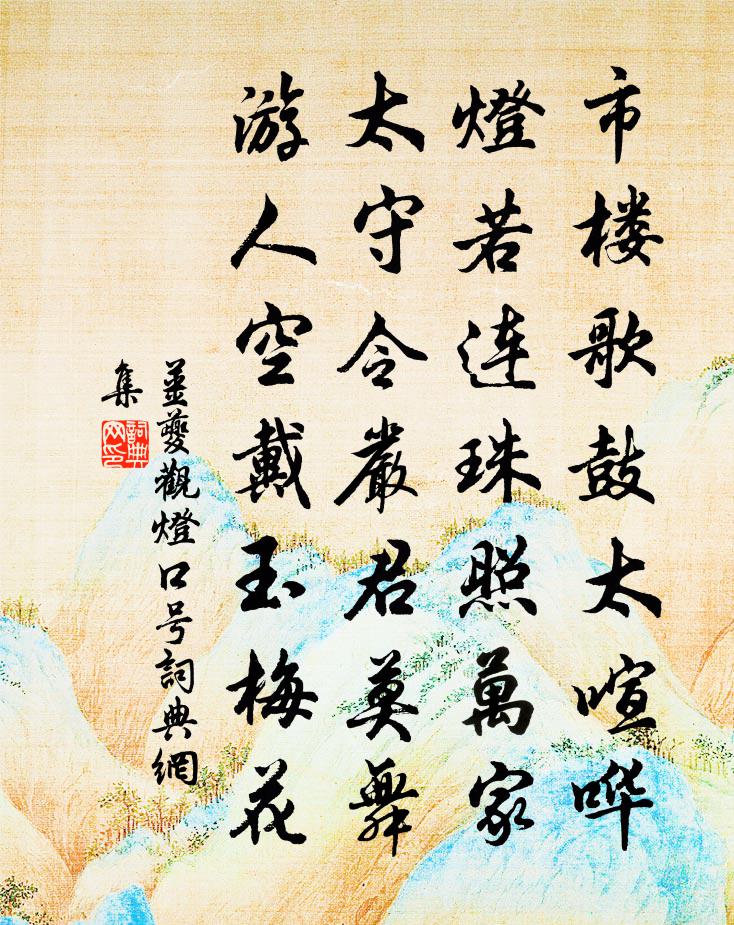 市楼歌鼓太喧哗
燈若連珠照萬家
太守令嚴君莫舞
游人空戴玉梅花
姜夔觀燈口号詞典網
集
詞典
网印